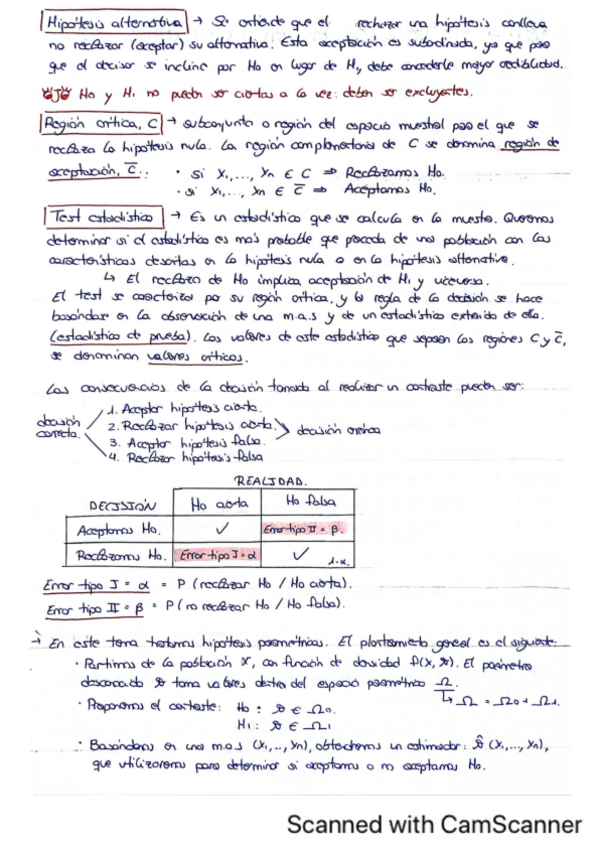 Hipótesis alternativa → Se entiende que el rechazar una hipótesis conlleva
no rechazar (aceptar) su alternativa. Esta aceptación es subordinada, ya que para
que el decisor se incline por H0 en lugar de H1, debe concederle mayor credibilidad.
H0 y H1 no pueden ser ciertas a la vez: deben ser excluyentes.
Región crítica, C → subconjunto o región del espacio muestral para el que se
rechaza la hipótesis nula. La región complementaria de C se denomina región de
aceptación, C̅:
· si X1,..., Xn ∈ C ⇒ Rechazamos H0.
· si X1,..., Xn ∈ C̅ ⇒ Aceptamos H0.
Test estadístico → Es un estadístico que se calcula en la muestra. Queremos
determinar si el estadístico es más probable que proceda de una población con las
características descritas en la hipótesis nula o en la hipótesis alternativa.
↳ El rechazo de H0 implica aceptación de H1 y viceversa.
El test se caracteriza por su región crítica, y la regla de la decisión se hace
basándose en la observación de una m.a.s y de un estadístico extraído de ella.
(estadístico de prueba). Los valores de este estadístico que separan las regiones C y C̅,
se denominan valores críticos.
Las consecuencias de la decisión tomada al realizar un contraste pueden ser:
decisión correcta
1. Aceptar hipótesis cierta.
2. Rechazar hipótesis cierta.
3. Aceptar hipótesis falsa.
4. Rechazar hipótesis falsa
decisión errónea
REALIDAD.
DECISIÓN H0 cierta H0 falsa
Aceptamos H0. ✓ Error tipo II = β.
Rechazamos H0. Error tipo I = α ✓ 1-α.
Error tipo I = α = P (rechazar H0 / H0 cierta).
Error tipo II = β = P (no rechazar H0 / H0 falsa).
→ En este tema tratamos hipótesis paramétricas. El planteamiento general es el siguiente:
· Partimos de la población X, con función de densidad f(x, θ). El parámetro
desconocido θ toma valores dentro del espacio paramétrico Ω.
↳ Ω = Ω0 + Ω1.
· Proponemos el contraste: H0: θ ∈ Ω0.
H1: θ ∈ Ω1
· Basándonos en una m.a.s (X1,.., Xn), obtenemos un estimador: θ̂ (X1,..., Xn),
que utilizaremos para determinar si aceptamos o no aceptamos H0.
Scanned with CamScanner